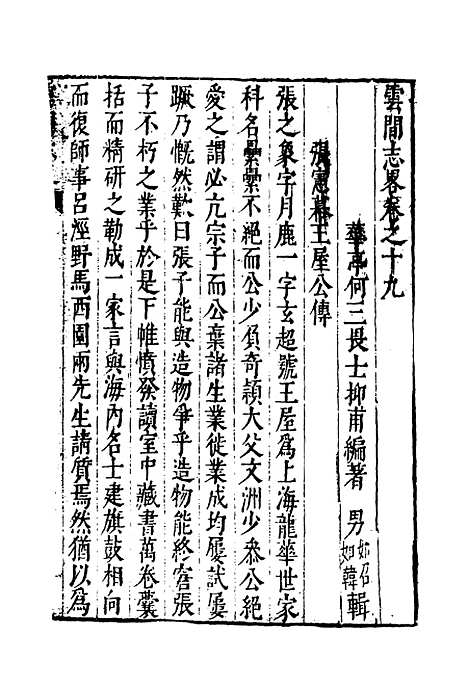 雲間志畧卷之十九
華亭何三畏士抑甫編著 男 如召 如韓 輯
張憲幕王屋公傳
張之象字月鹿一字玄超號王屋爲上海龍華世家
科名纍纍不絕而公少負奇穎大父文洲少叅公絕
愛之謂必亢宗子而公棄諸生業徙業成均屢試屢
蹶乃慨然歎曰張子能與造物爭乎造物能終窘張
子不朽之業乎於是下帷憤發讀室中藏書萬卷囊
括而精研之勒成一家言與海內名士建旗鼓相向
而復師事呂涇野馬西園兩先生請質焉然猶以爲